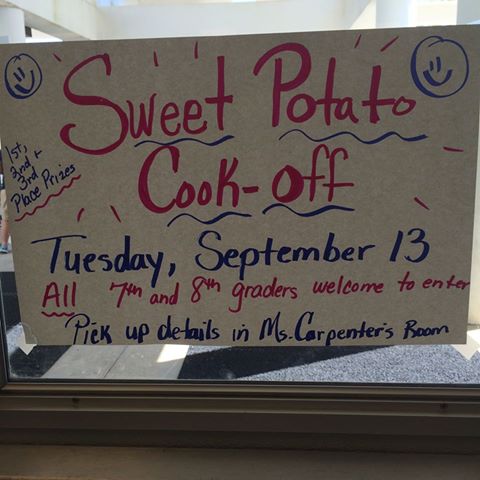 Sweet Potato
Cook-off
1st,
2nd +
3rd
Place Prizes
Tuesday, September 13
All 7th and 8th graders welcome to enter
Pick up details in Ms. Carpenter's Room